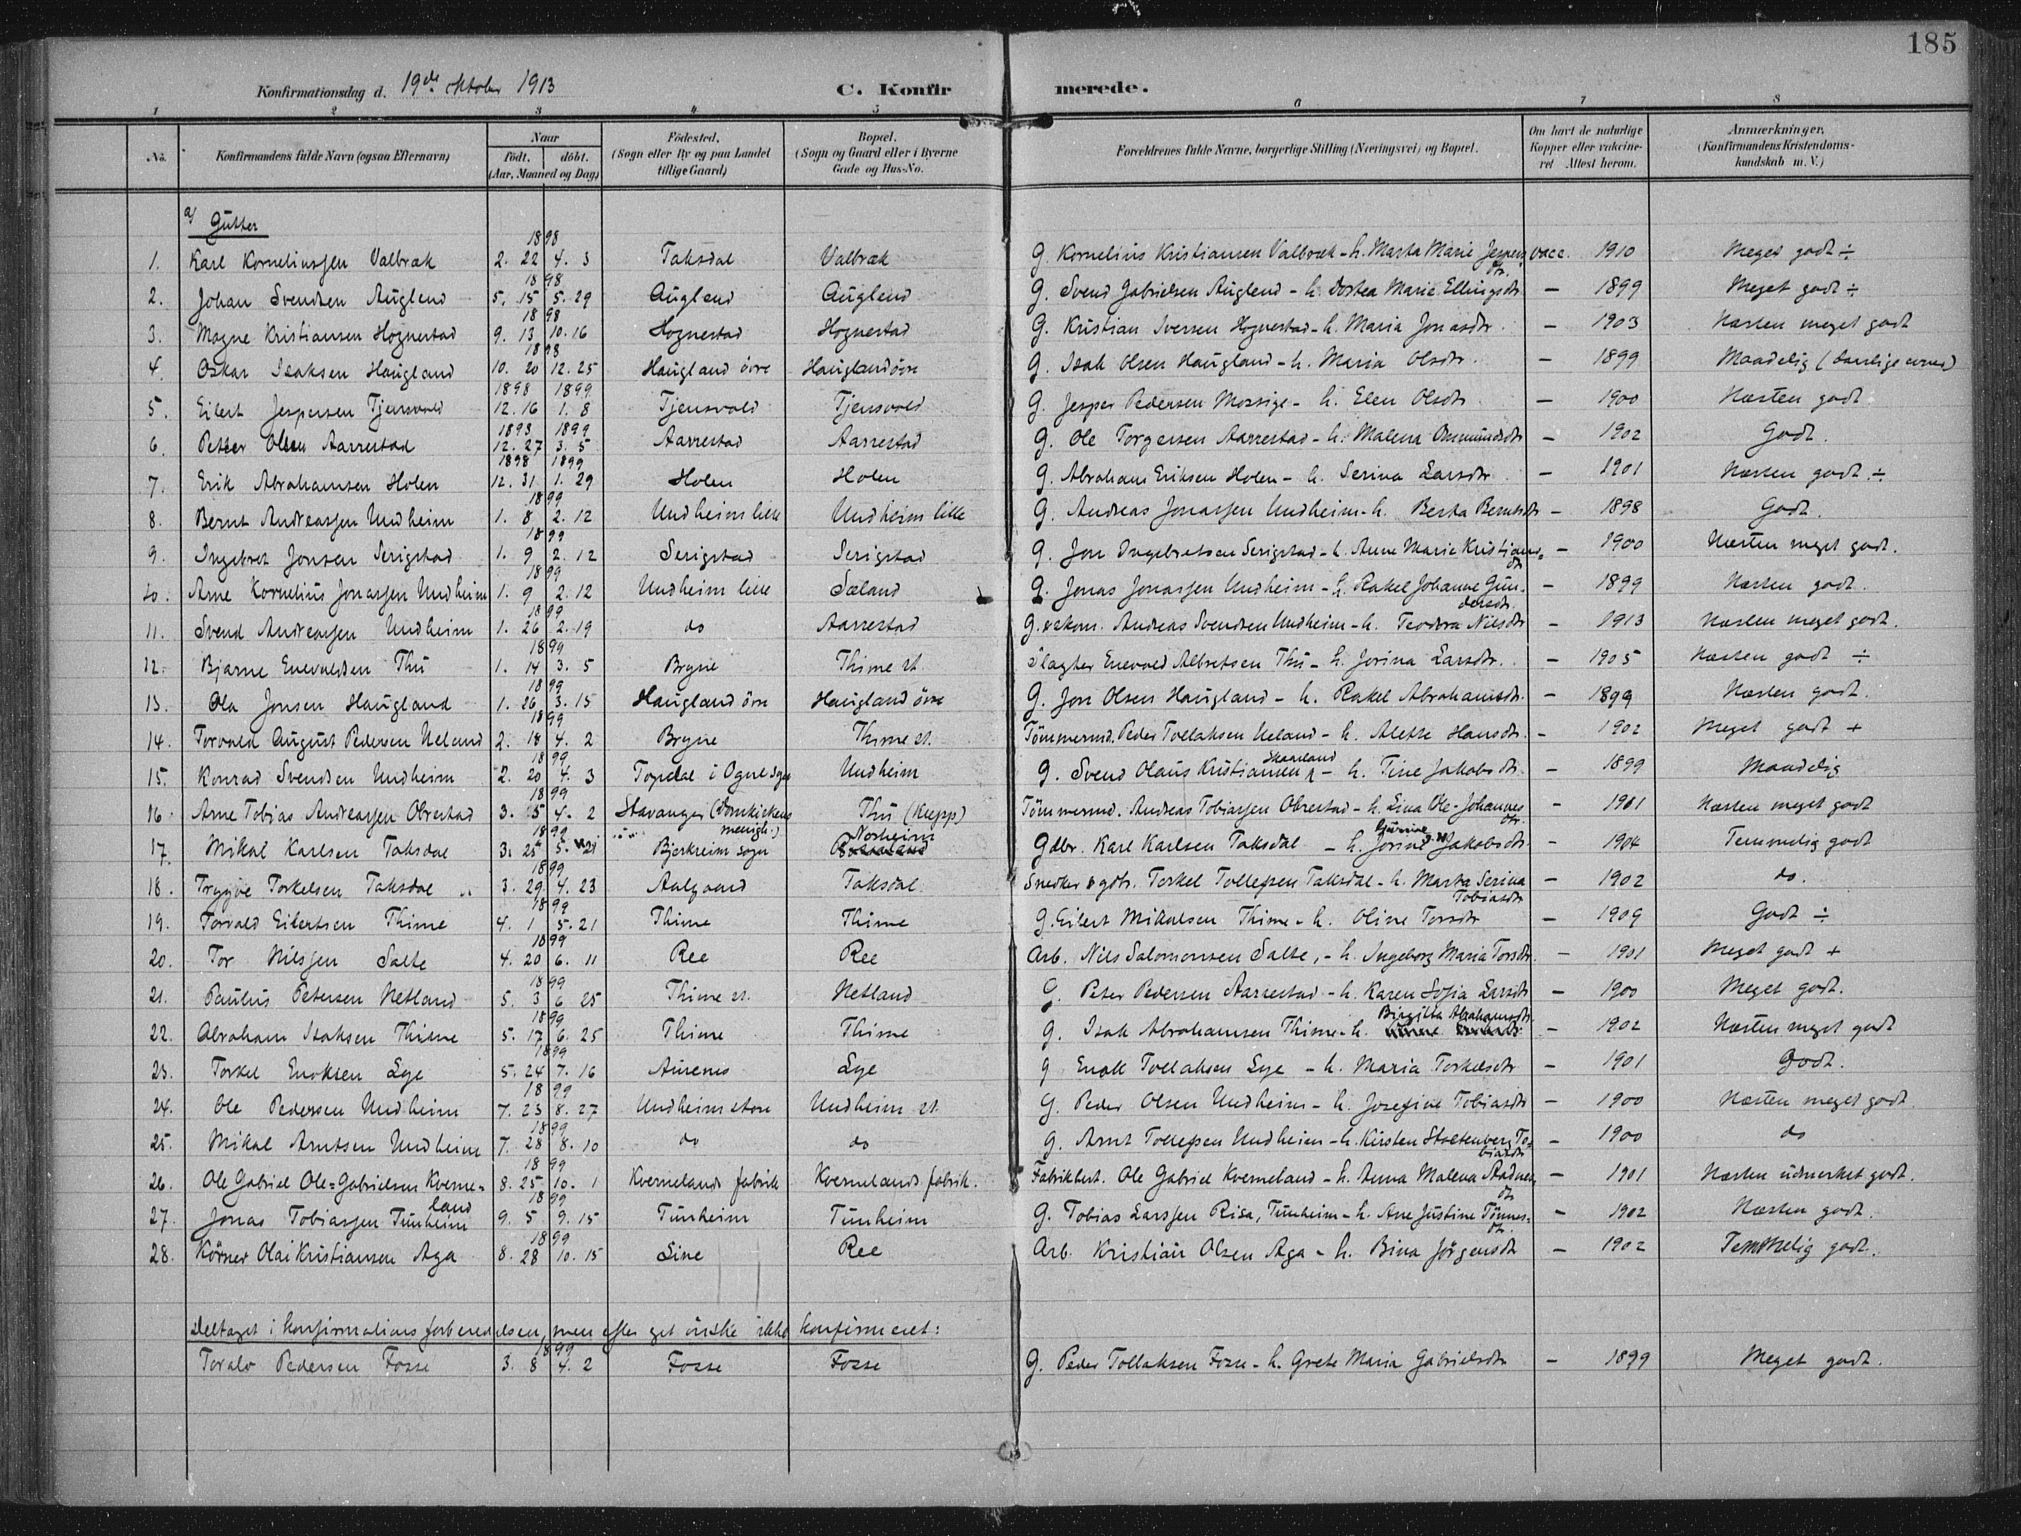 185
Konfirmationsdag d. 19de oktober 1913 C. Konfirmerede.
1 2 3 4 5 6 7 8
No. Konfirmandens fulde Navn (ogsaa Efternavn) Naar født, døbt. (Aar, Maaned og Dag) Fødested, (Sogn eller By og paa Landet tillige Gaard) Bopæl. (Sogn og Gaard eller i Byerne Gade og Hus-No. Forældrenes fulde Navne, borgerlige Stilling (Næringsvei) og Bopæl. Om havt de naturlige Kopper eller vakcineret Attest herom. Anmærkninger, (Konfirmandens Kristendomskundskab m. V.)
a) Gutter
1898
1. Karl Korneliussen Valbræk 2. 22 4. 3 Taksdal Valbræk G. Kornelius Kristiansen Valbræk - h. Marta Marie Jespersdtr. vacc. 1910 Meget godt ÷
1898
2. Johan Svendsen Auglend 5. 15 5. 29 Auglend Auglend G. Svend Gabrielsen Auglend - h. Dortea Marie Ellingsdtr — 1899 Meget godt ÷
1898
3. Magne Kristiansen Hognestad 9. 13 10. 16 Hognestad Hognestad G. Kristian Iversen Hognestad - h. Maria Jonasdtr. — 1903 Næsten meget godt
1898
4. Oskar Isaksen Haugland 10. 20 12. 25 Haugland övre Haugland övre G. Isak Olsen Haugland - h. Maria Olsdtr. — 1899 Maadelig (daarlige evner)
1898 1899
5. Eilert Jespersen Tjensvold 12. 16 1. 8 Tjensvold Tjensvold G. Jesper Pedersen Mossige - h. Elen Olsdtr — 1900 Næsten godt
1893 1899
6. Petter Olsen Aarrestad 12. 27 3. 5 Aarrestad Aarrestad G. Ole Torgersen Aarrestad - h. Malena Osmundsdtr — 1902 Godt.
1898 1899
7. Erik Abrahamsen Holen 12. 31 1. 29 Holen Holen G. Abraham Eriksen Holen - h. Serina Larsdtr. — 1901 Næsten godt. ÷
1899
8. Bernt Andreassen Undheim 1. 8 2. 12 Undheim lille Undheim lille G. Andreas Jonassen Undheim - h. Berta Berntsdtr — 1898 Godt.
1899
9. Ingebret Jonsen Serigstad 1. 9 2. 12 Serigstad Serigstad G. Jon Ingebretsen Serigstad - h. Anne Marie Kristiansdtr — 1900 Næsten meget godt.
1899
10. Arne Kornelius Jonassen Undheim 1. 9 2. 12 Undheim lille Sæland G. Jonas Jonassen Undheim - h. Rakel Johanne Gundersdtr. — 1899 Næsten godt.
1899
11. Svend Andreassen Undheim 1. 26 2. 19 do Aarrestad G. Andreas Svendsen Undheim - h. Teodora Nilsdtr — 1913 Næsten meget godt.
1899
12. Bjarne Enevaldsen Thu 1. 14 3. 5 Bryne Thime st. Slagter Enevald Albretsen Thu - h. Jorina Larsdtr. — 1905 Næsten godt ÷
1899
13. Ola Jonsen Haugland 1. 26 3. 15 Haugland övre Haugland övre G. Jon Olsen Haugland - h. Rakel Abrahamsdtr. — 1899 Næsten godt.
1899
14. Torvald August Pedersen Ueland 2. 18 4. 2 Bryne Thime st. Tömmermd. Peder Tollaksen Ueland - h. Alette Hansdtr. — 1902 Meget godt +
1899
15. Konrad Svendsen Undheim 2. 20 4. 3 Topdal i Ogne sogn Undheim G. Svend Olaus Kristiansen Skanland - h. Tine Jakobsdtr — 1899 Maadelig
1899
16. Arne Tobias Andreassen Obrestad 3. 5 4. 2 Stavanger (Domkirkens menigh.) Thu (Klepp) Tömmermd. Andreas Tobiassen Obrestad - h. Lina Ole-Johannesdtr. — 1901 Næsten meget godt
1899
17. Mikal Karlsen Taksdal 3. 25 5. 21 Bjerkreim sogn Norheim Gdbr. Karl Karlsen Taksdal - h. Jorine Jakobsdtr — 1904 Temmelig godt
1899
18. Trygve Torkelsen Taksdal 3. 29 4. 23 Aalgaard Taksdal. Snedker & gdbr. Torkel Tollefsen Taksdal - h. Marta Serina Tobiasdtr — 1902 do.
1899
19. Torvald Eilertsen Thime 4. 1 5. 21 Thime Thime G. Eilert Mikalsen Thime - h. Oline Torsdtr — 1909 Godt ÷
1899
20. Tor Nilssen Salte 4. 20 6. 11 Ree Ree Arb. Nils Salomonsen Salte, - h. Ingeborg Maria Torsdtr. — 1901 Meget godt +
1899
21. Paulus Petersen Netland 5. 3 6 25 Thime st. Netland G. Peter Pedersen Aarrestad - h. Karen Sofia Larsdtr — 1900 Meget godt.
1899
22. Abraham Isaksen Thime 5. 17 6. 25 Thime Thime G. Isak Abrahamsen Thime - h. Birgitta Abrahamsdtr — 1902 Næsten meget godt
1899
23. Torkel Enoksen Lye 5. 24 7. 16 Aurenes Lye G Enok Tollaksen Lye - h. Maria Torkelsdtr — 1901 Godt.
1899
24. Ole Pedersen Undheim 7. 23 8. 27 Undheim store Undheim st. G. Peder Olsen Undheim - h. Josefine Tobiasdtr — 1900 Næsten meget godt.
1899
25. Mikal Arntsen Undheim 7. 28 8. 10 do do G. Arnt Tollefsen Undheim - h. Kirsten Stoltenberg Tobiasdtr — 1900 do
1899
26. Ole Gabriel Ole-Gabrielsen Kverneland 8. 25 10. 1 Kvernelands fabrik Kvernelands fabrik. Fabrikbest. Ole Gabriel Kverneland - h. Anna Malena Aadnesdtr — 1901 Næsten udmerket godt.
1899
27. Jonas Tobiassen Tunheim 9. 5 9. 15 Tunheim Tunheim G. Tobias Larssen Risa, Tunheim - h. Ane Justine Tönnesdtr. — 1902 Næsten godt.
1899
28. Körner Olai Kristiansen Aga 8. 28 10. 15 Line Ree Arb. Kristian Olsen Aga - h. Bina Jørgensdtr — 1902 Temmelig godt.
Deltaget i konfirmationsforberedelsen, men efter eget önske ikke konfirmeret:
1899
Toralv Pedersen Fosse 3. 8 4. 2 Fosse Fosse G. Peder Tollaksen Fosse - h. Grete Maria Gabrielsdtr — 1899 Meget godt.